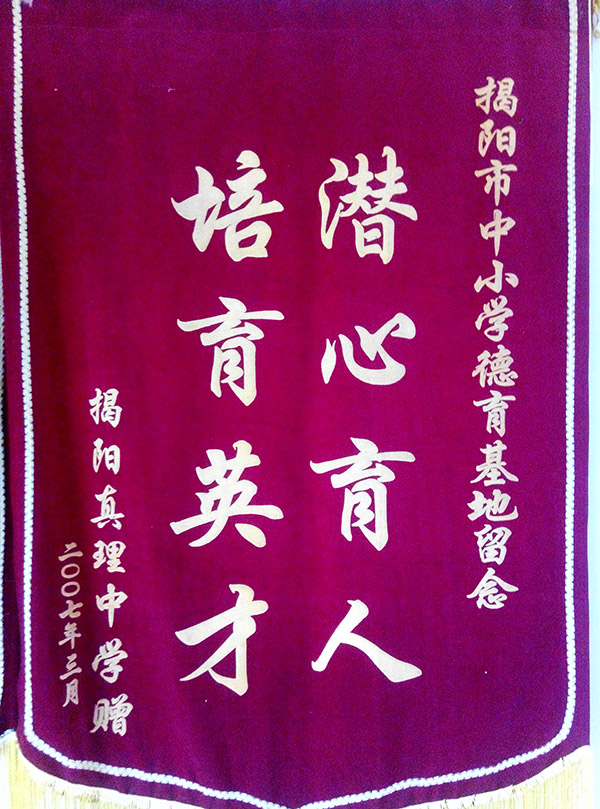 揭阳市中小学德育基地留念
潜心育人
培育英才
揭阳真理中学赠
二〇〇七年三月